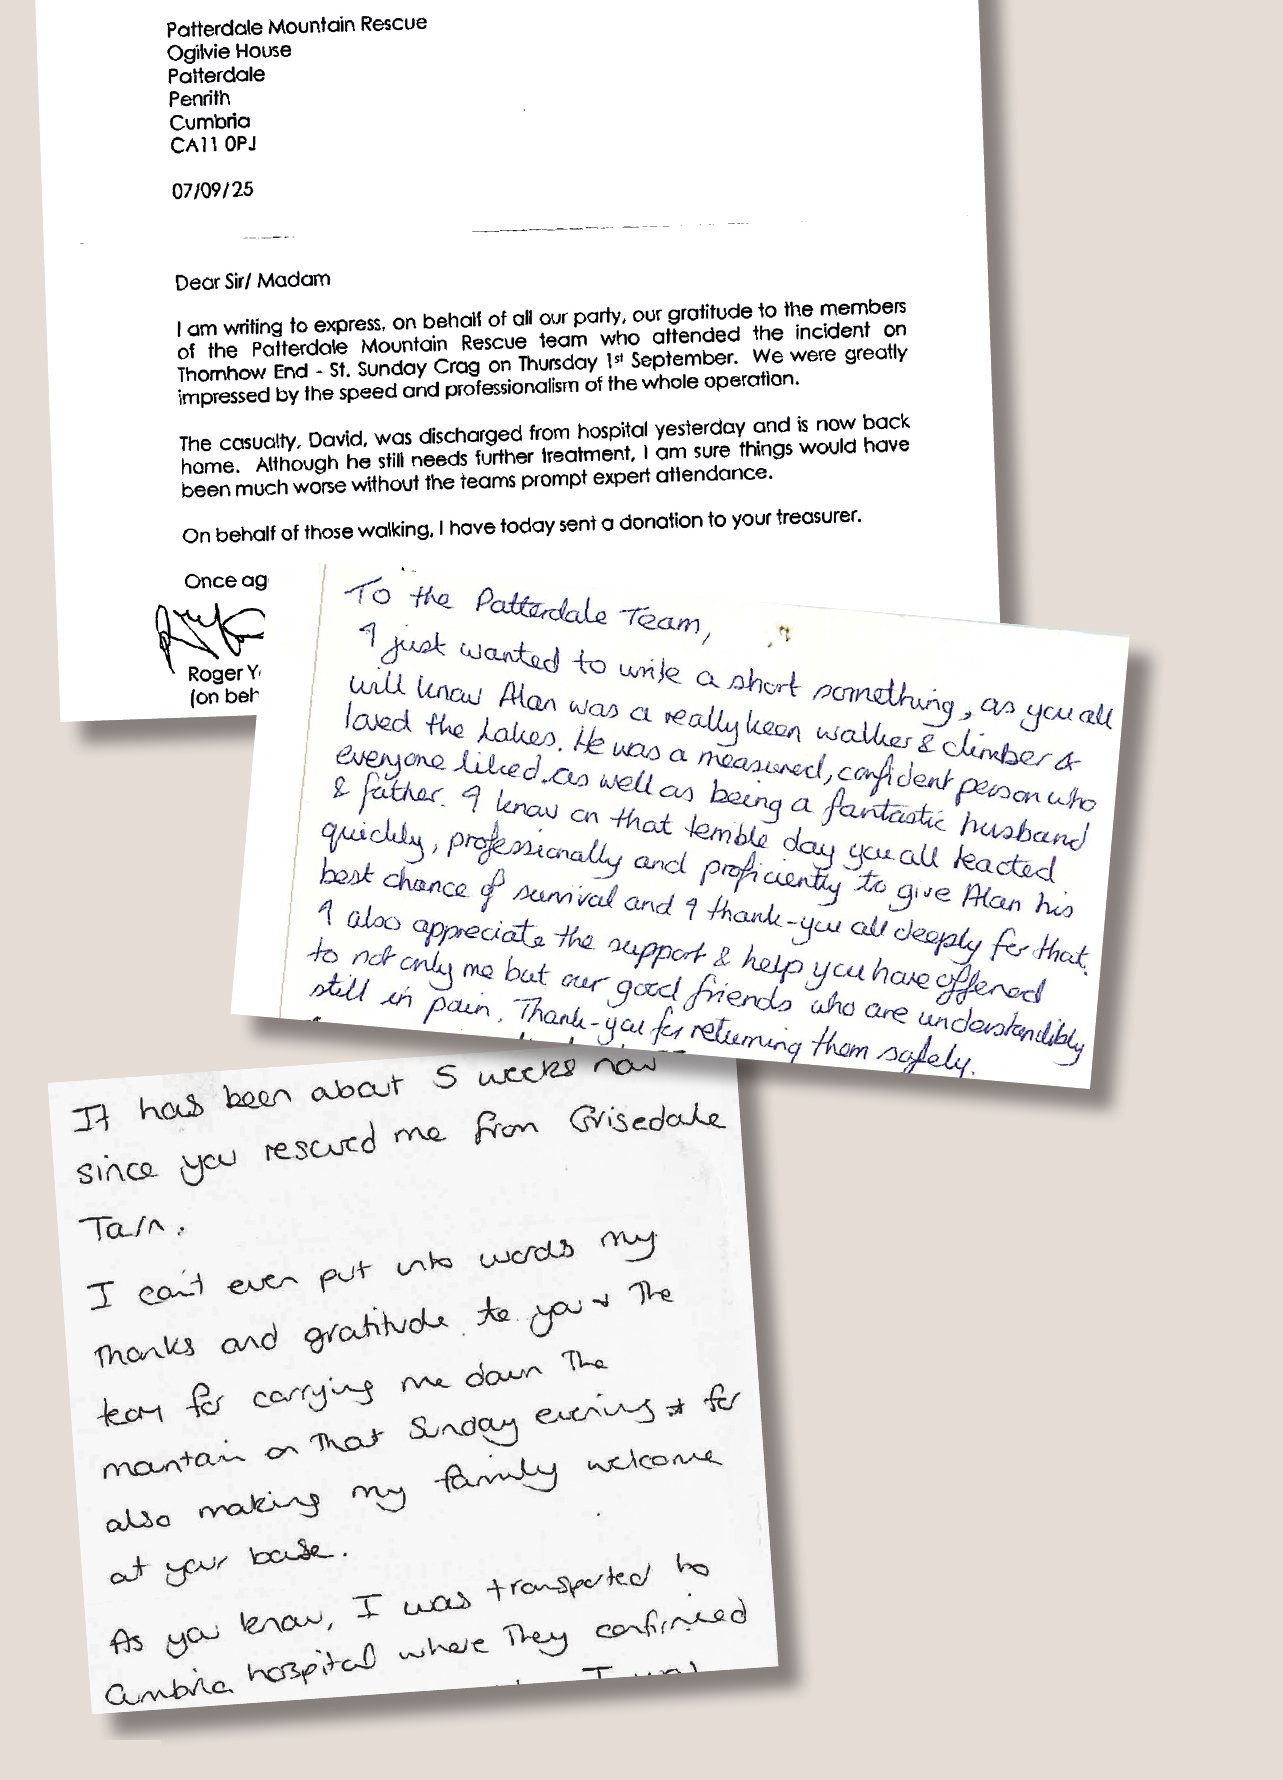 Patterdale Mountain Rescue
Ogilvie House
Patterdale
Penrith
Cumbria
CA11 0PJ
07/09/25
Dear Sir/ Madam
I am writing to express, on behalf of all our party, our gratitude to the members
of the Patterdale Mountain Rescue team who attended the incident on
Thornhow End - St. Sunday Crag on Thursday 1st September. We were greatly
impressed by the speed and professionalism of the whole operation.
The casualty, David, was discharged from hospital yesterday and is now back
home. Although he still needs further treatment, I am sure things would have
been much worse without the teams prompt expert attendance.
On behalf of those walking, I have today sent a donation to your treasurer.
Once ag
Roger Y
(on beh
To the Patterdale Team,
I just wanted to write a short something, as you all
will know Alan was a really keen walker & climber &
loved the Lakes. He was a measured, confident person who
everyone liked, as well as being a fantastic husband
& father. I know on that terrible day you all reacted
quickly, professionally and proficiently to give Alan his
best chance of survival and I thank-you all deeply for that.
I also appreciate the support & help you have offered
to not only me but our good friends who are understandibly
still in pain. Thank-you for returning them safely.
It has been about 5 weeks now
since you rescued me from Grisedale
Tarn.
I can't even put into words my
thanks and gratitude to you & the
team for carrying me down the
mountain on that Sunday evening & for
also making my family welcome
at your base.
As you know, I was transported to
Cumbria hospital where they confirmed
I was